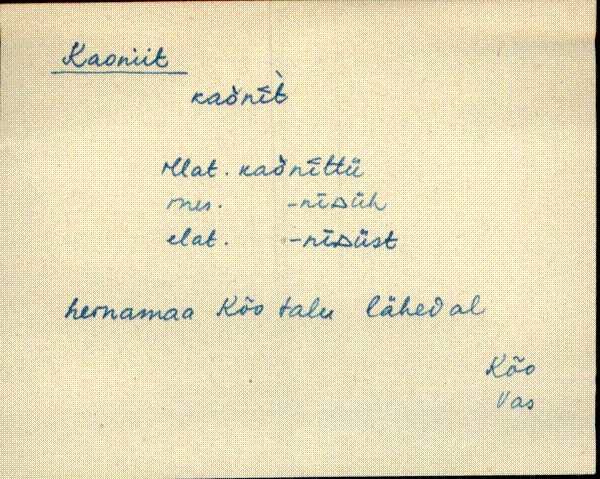 Kaoniit
kaònī̀t
illat. kaònīttü
ines. -nīsüh
elat. -nīsüst
hernamaa Kõo talu lähedal
Kõo
Vas